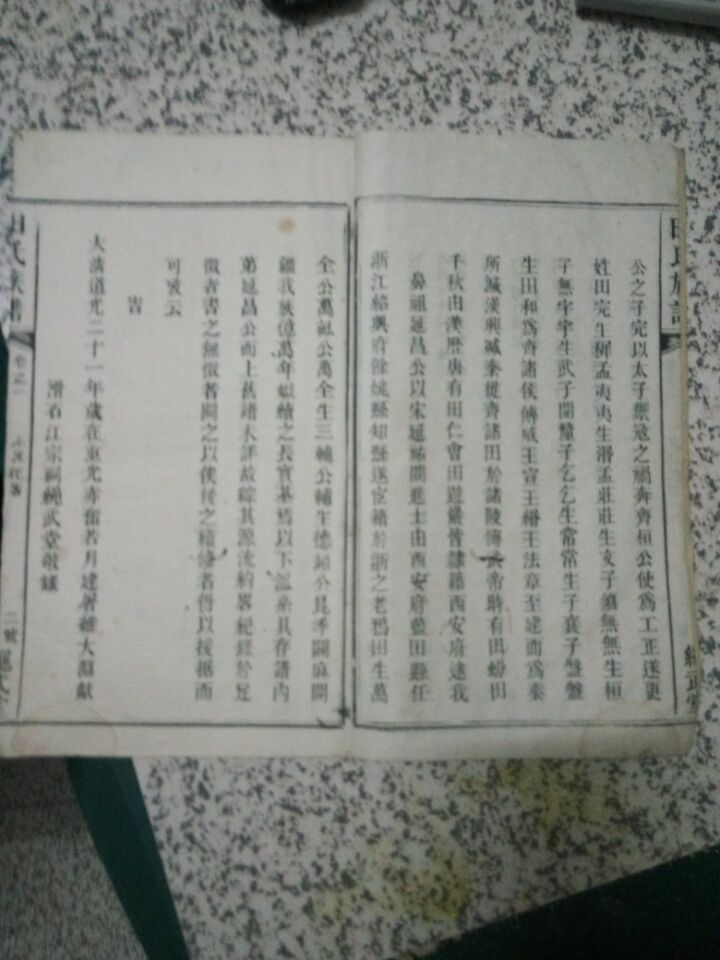 公之子完以太子禦冦之禍奔齊桓公使爲工正遂更
姓田完生穉孟夷夷生湣孟莊莊生文子須無無生桓
子無宇宇生武子開釐子乞乞生常常生子襄子盤盤
生田和爲齊諸侯傳威王宣王緡王法章至建而爲秦
所滅漢興滅秦徙齊諸田於諸陵傳 帝時有田蚡田
千秋由漢歷唐有田仁會田遊巖晉隸籍西安府逮我
鼻祖延昌公以宋延祐間進士由西安府藍田縣任
浙江紹興府餘姚縣知縣遂宦籍於浙之老鴉田生萬
全公萬缸公萬全生三輔公輔生德 公昆季闢麻開
疆我族億萬年嗣續之長實基焉以下派系具存譜內
第延昌公而上舊諸未詳故綜其源流約畧紀錄於足
徵者書之無徵者闕之以俟後之續修者得以援据而
可攷云
旹
大清道光二十一年歲在重光赤奮若月建 大淵獻
滑石江宗祠繩武堂敬鐫
田氏族譜
卷之一
二號
繩武堂